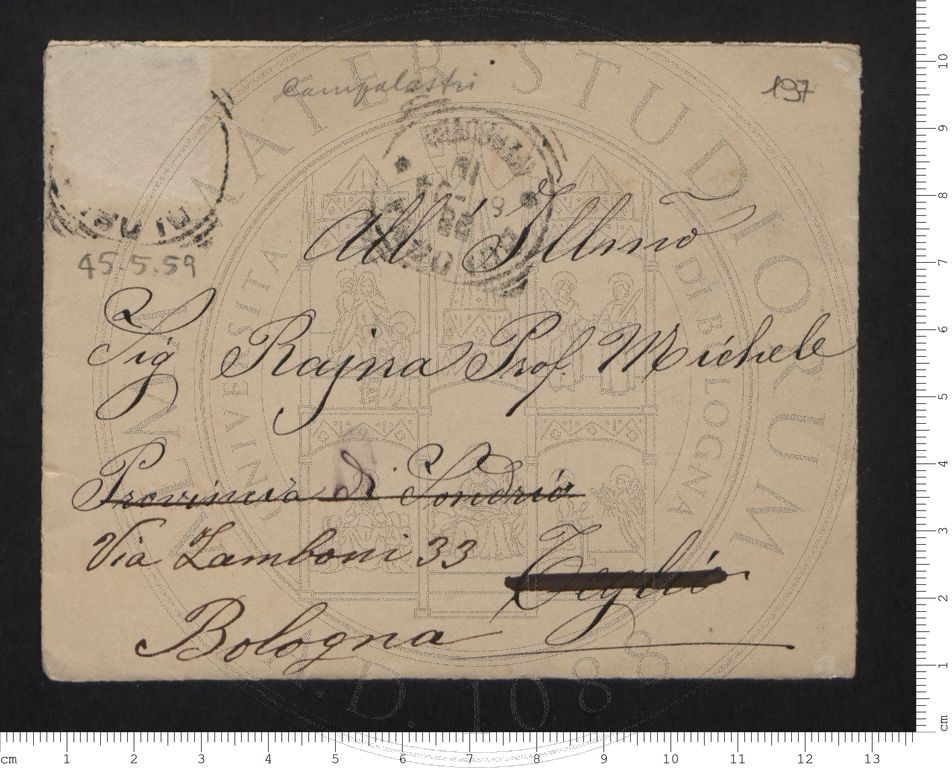 Campalastri
197
45-5.59
All' Illmo
Sig Rajna Prof. Michele
Provincia di Sondrio
Via Zamboni 33
Teglio
Bologna
ALMA MATER STUDIORUM
UNIVERSITA DI BOLOGNA
A.D. 1088
cm 1 2 3 4 5 6 7 8 9 10 11 12 13
10
9
8
7
6
5
4
3
2
1
cm